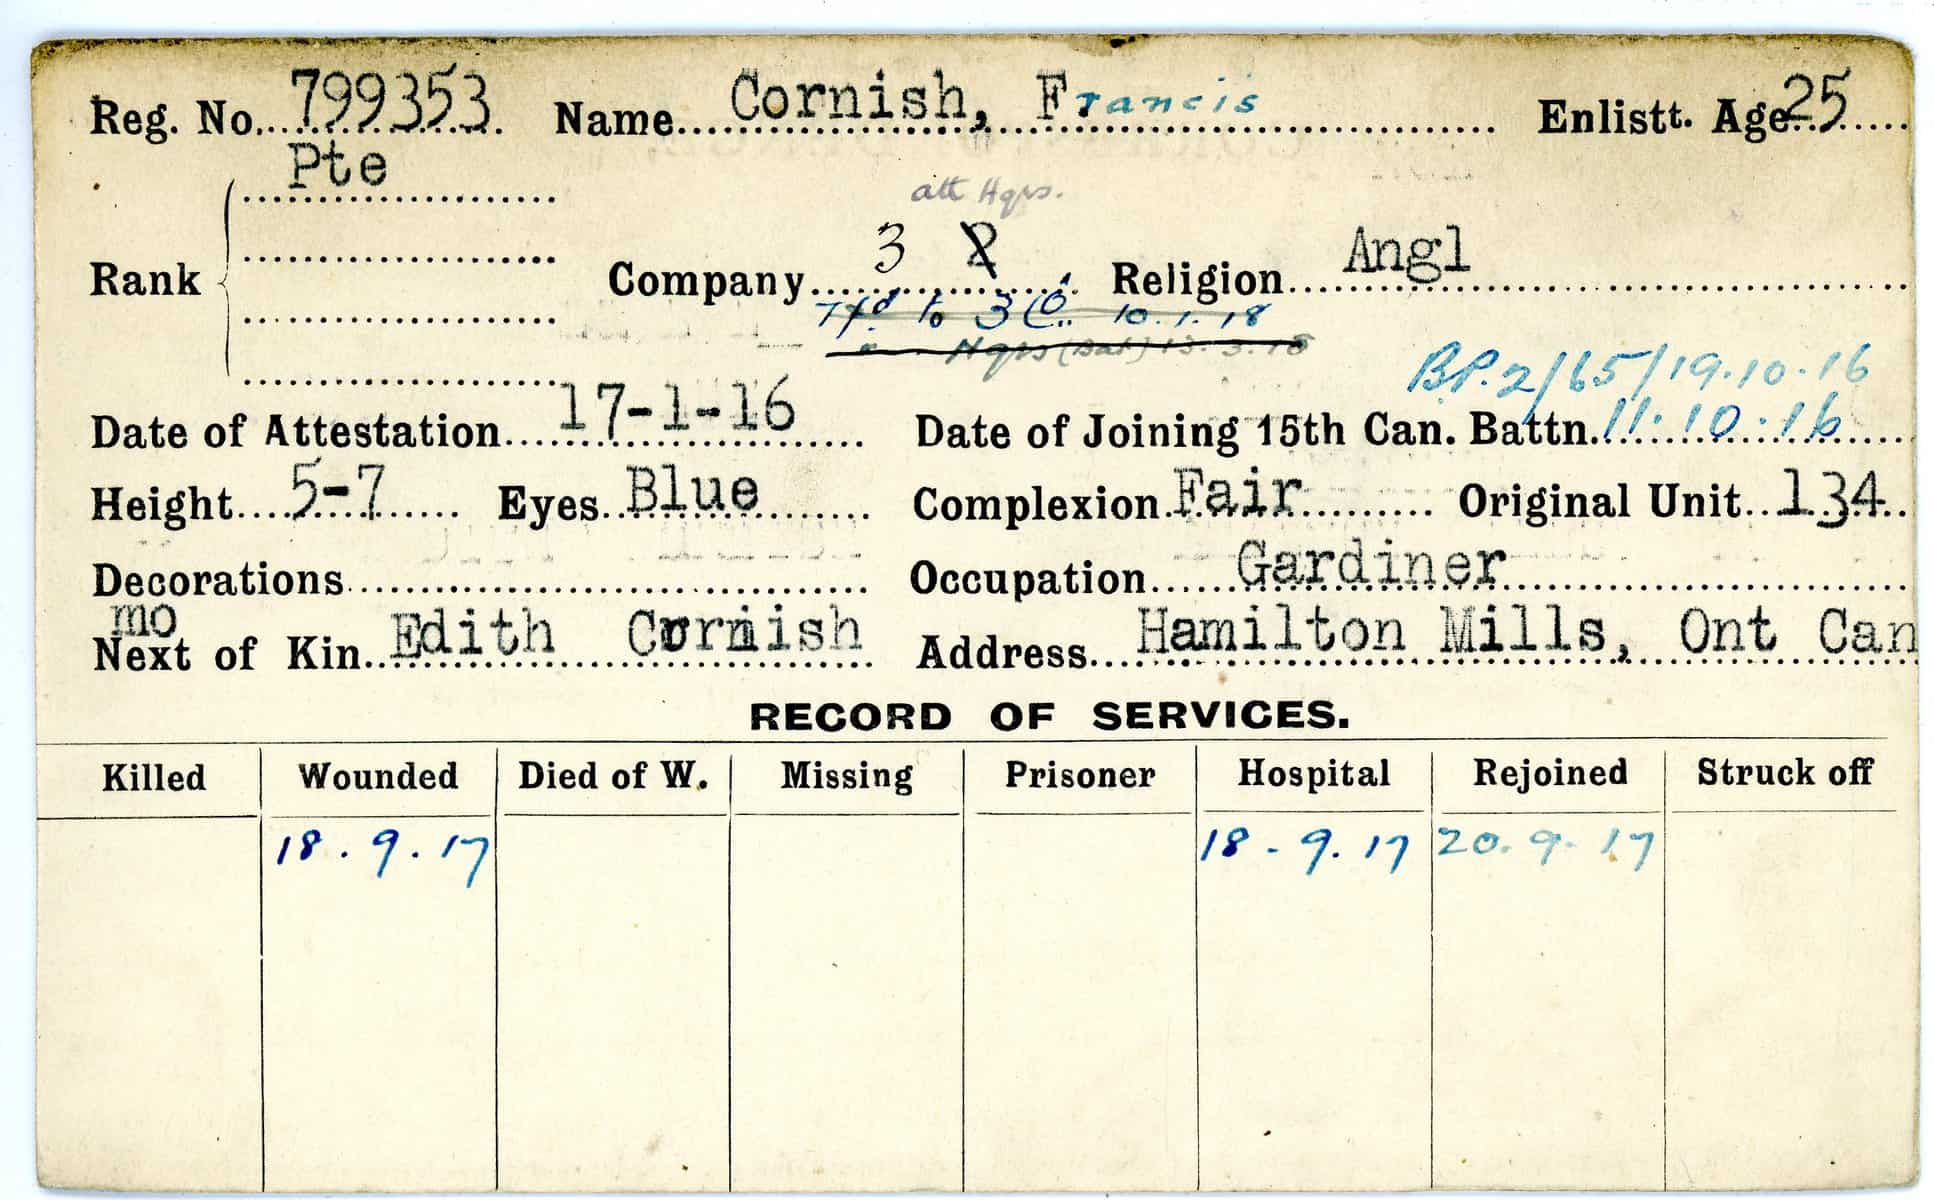 Reg. No. 799353 Name Cornish, Francis Enlistt. Age 25
Pte
att Hqrs.
Rank Company 3 2 Religion Angl
Tfd to 3 Co. 10.1.18
" " Hqrs (Bat) 13.3.18
BP.2/65/19.10.16
Date of Attestation 17-1-16 Date of Joining 15th Can. Battn. 11.10.16
Height 5-7 Eyes Blue Complexion Fair Original Unit 134
Decorations Occupation Gardiner
mo
Next of Kin Edith Cornish Address Hamilton Mills, Ont Can
RECORD OF SERVICES.
Killed Wounded Died of W. Missing Prisoner Hospital Rejoined Struck off
18.9.17 18-9.17 20.9.17